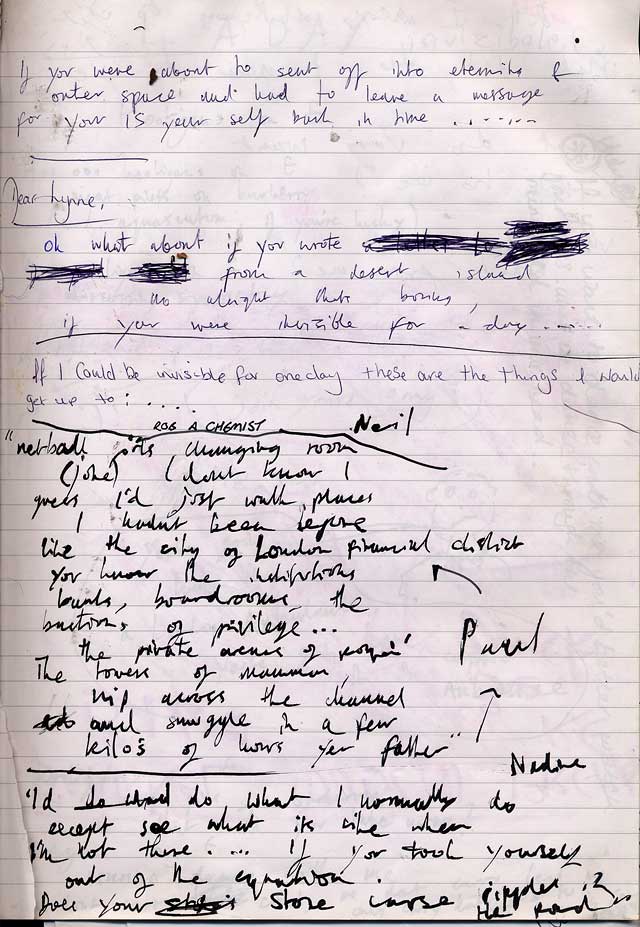 If you were about to sent off into eternity &
outer space and had to leave a message
for your 15 year self back in time .......
Dear Lynne,
Ok what about if you wrote
from a desert island
no alright thats boring,
if you were invisible for a day ......
If I could be invisible for one day these are the things I would
get up to : .....
ROB A CHEMIST Neil
"netball girls changing room
(joke) (dont know I
guess I'd just walk places
I hadn't been before
like the city of London financial district
you know the institutions
banks, boardrooms, the
bastions of privilege...
the private avenue of
Paul
The towers of mammon,
nip across the channel
and smuggle in a few
kilo's of hours yer father"
Nadine
"I'd do what I normally do
except see what its like when
I'm not there..... If you took yourself
out of the equation.
Does your stone cause ripples in
the pond